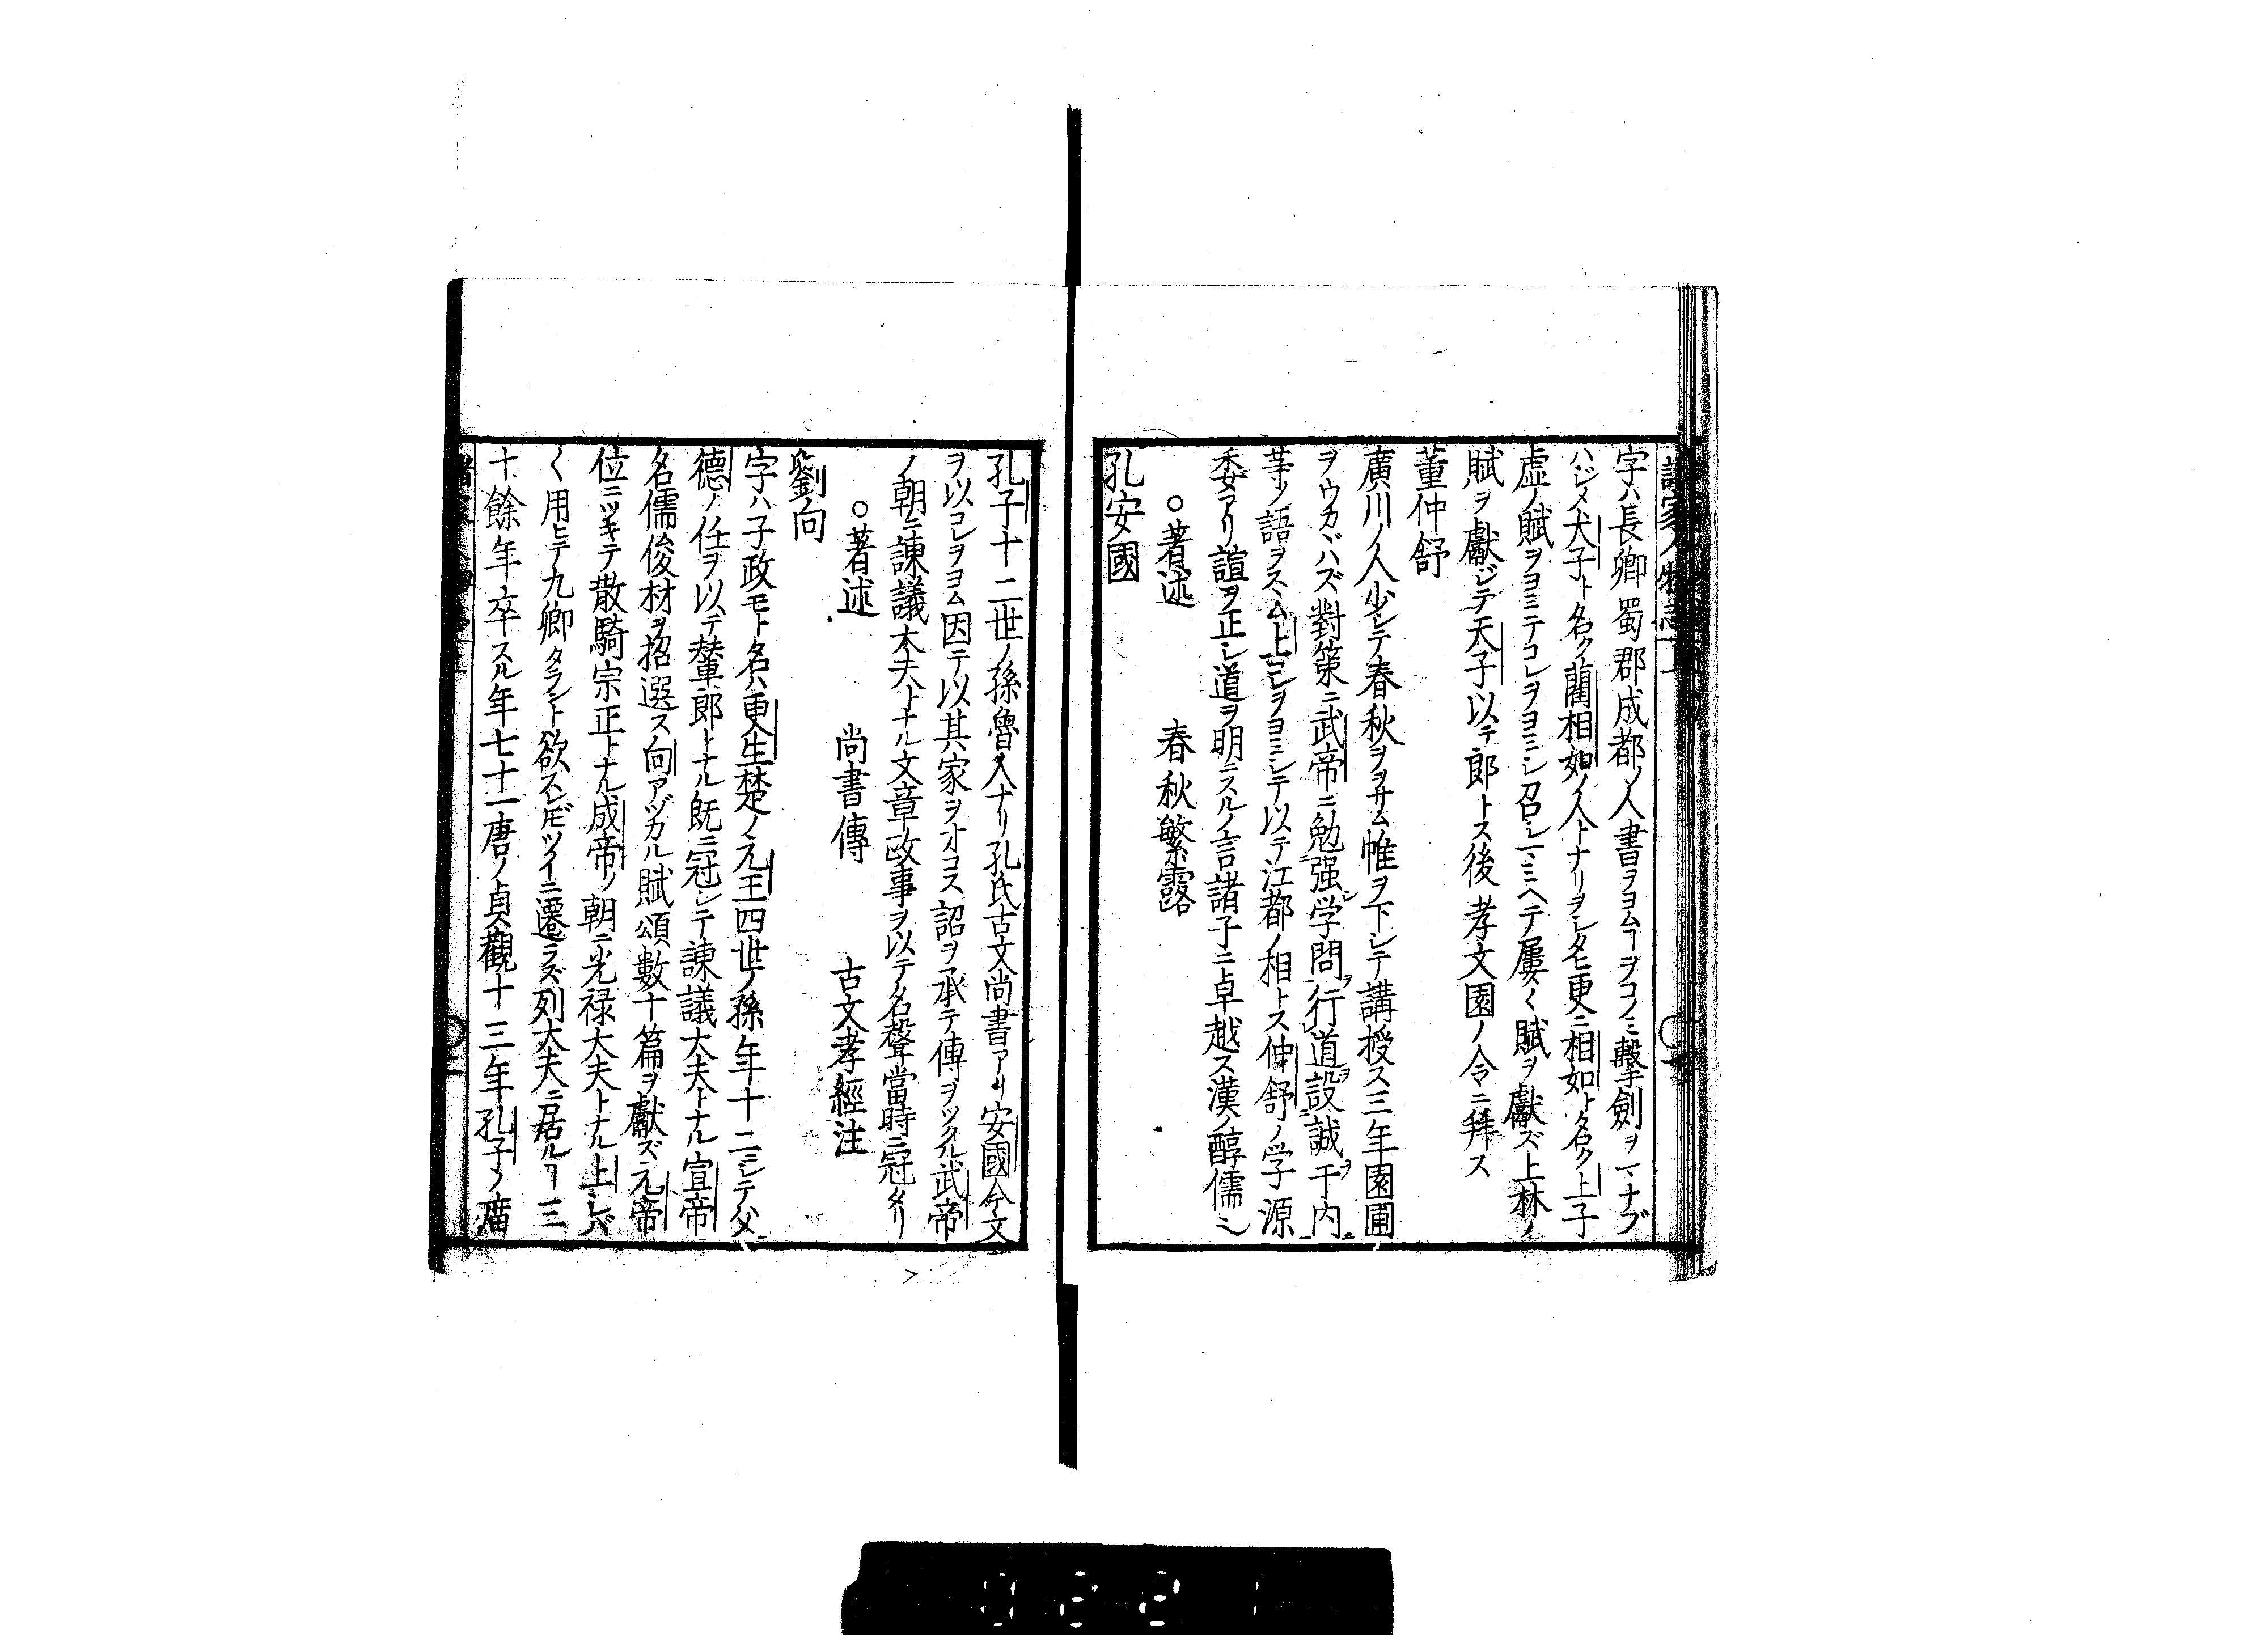 字ハ長卿蜀郡成都ノ人書ヲヨムヿヲコノミ擊劍ヲマナブ
ハジメ犬子ト名ク藺相如ノ人トナリヲシタヒ更ニ相如ト名ク上子
虚ノ賦ヲヨミテコレヲヨミシ召シマミヘテ屢〱賦ヲ獻ズ上林ノ
賦ヲ獻ジテ天子以テ郎トス後孝文園ノ令ニ拜ス
董仲舒
廣川ノ人少シテ春秋ヲヲサム帷ヲ下シテ講授ス三年園圃
ヲウカヾハズ對策ニ武帝ニ勉强学問行道設誠于内
等ノ語ヲスヽム上コレヲヨミシテ以テ江都ノ相トス仲舒ノ学源
委アリ誼ヲ正シ道ヲ明ニスルノ言諸子ニ卓越ス漢ノ醇儒ナリ
○著述　春秋繁露
孔安國
孔子十二世ノ孫魯人ナリ孔氏古文尚書アリ安國今文
ヲ以コレヲヨム因テ以其家ヲオコス詔ヲ承テ傳ヲツクル武帝
ノ朝ニ諌議大夫トナル文章政事ヲ以テ名聲當時ニ冠タリ
○著述　尚書傳　古文孝經注
劉向
字ハ子政モト名ハ更生楚ノ元王四世ノ孫年十二ニシテ父
德ノ任ヲ以テ輦郎トナル既ニ冠シテ諌議大夫トナル宣帝
名儒俊材ヲ招選ス向アヅカル賦頌數十篇ヲ獻ズ元帝
位ニツキテ散騎宗正トナル成帝ノ朝ニ光禄大夫トナル上シバ
〱用ヒテ九卿タラント欲スレ𪜈ツイニ遷ラズ列大夫ニ居ルヿ三
十餘年卒スル年七十一唐ノ貞觀十三年孔子ノ廟